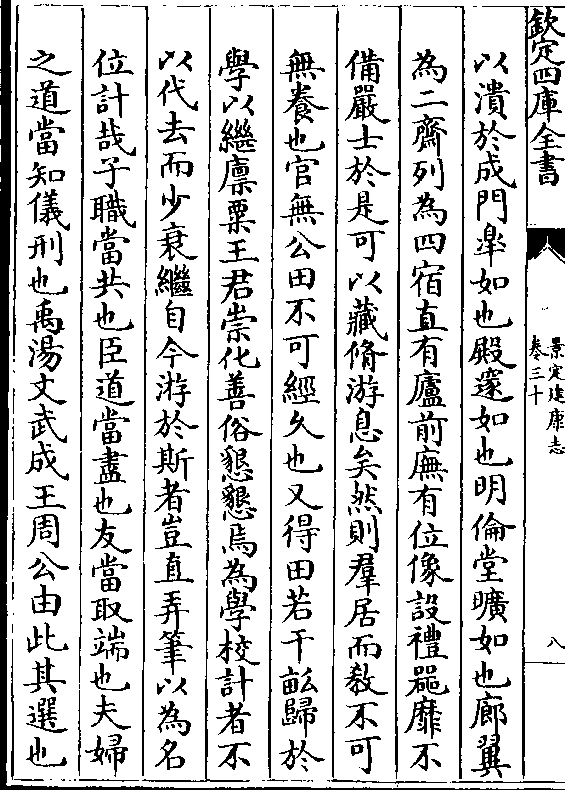 欽定四庫全書
景定建康志
卷三十
八
以潰於成門臯如也殿邃如也明倫堂曠如也廊翼
為二齋列為四宿直有廬前廡有位像設禮噐靡不
備嚴士於是可以藏脩游息矣然則羣居而教不可
無養也官無公田不可經乆也又得田若干畝歸於
學以繼廪粟王君崇化善俗懇懇焉為學校計者不
以代去而少衰繼自今游於斯者豈直弄筆以為名
位計哉子職當共也臣道當盡也友當取端也夫婦
之道當知儀刑也禹湯文武成王周公由此其選也